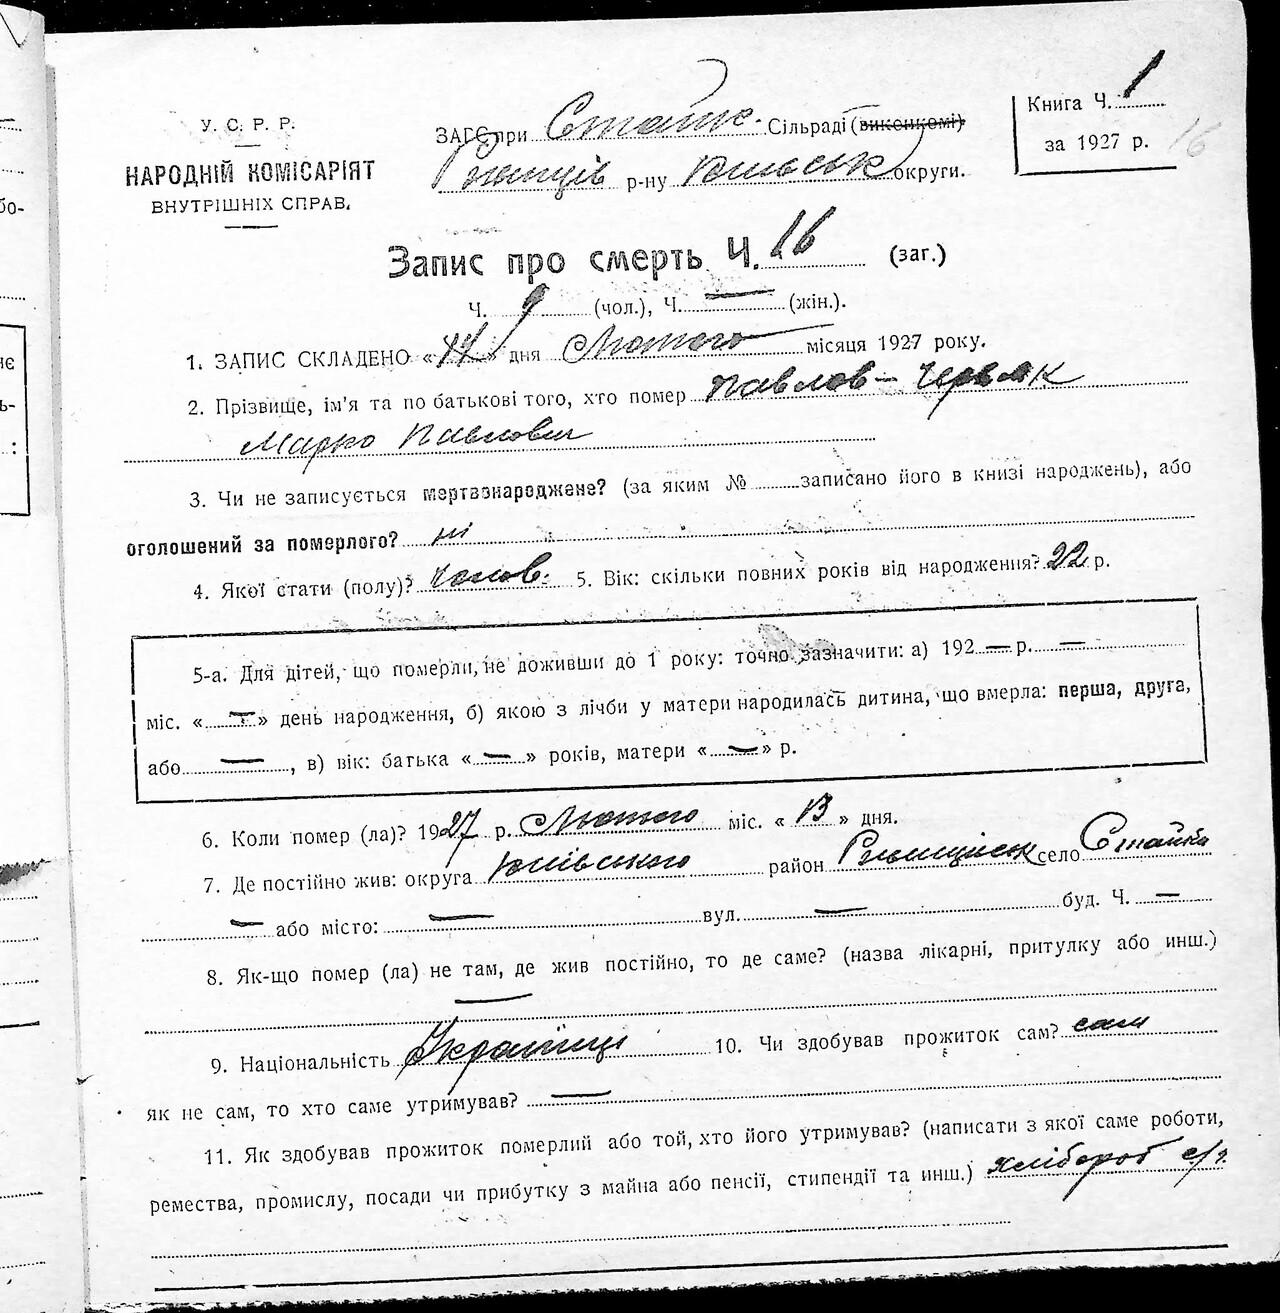 У. С. Р. Р.
НАРОДНІЙ КОМІСАРІЯТ
ВНУТРІШНІХ СПРАВ.
ЗАГС при Стайк. Сільраді (виконкомі)
р-ну округи.
Книга Ч. 1
за 1927 р. 16
Запис про смерть Ч. 16 (заг.)
Ч. 9 (чол.), Ч. — (жін.).
1. ЗАПИС СКЛАДЕНО « 14 » дня Лютого місяця 1927 року.
2. Прізвище, ім'я та по батькові того, хто помер Павлов – Червяк
Марко Павлович
3. Чи не записується мертвонароджене? (за яким № записано його в книзі народжень), або
оголошений за померлого? ні
4. Якої стати (полу)? чолов. 5. Вік: скільки повних років від народження? 22 р.
5-а. Для дітей, що померли, не доживши до 1 року: точно зазначити: а) 192 — р. —
міс. « — » день народження, б) якою з лічби у матери народилась дитина, що вмерла: перша, друга,
або — , в) вік: батька « — » років, матери « — » р.
6. Коли помер (ла)? 1927 р. Лютого міс. « 13 » дня.
7. Де постійно жив: округа Київського район село Стайки
— або місто: — вул. — буд. Ч. —
8. Як-що помер (ла) не там, де жив постійно, то де саме? (назва лікарні, притулку або инш.)
—
9. Національність Українці 10. Чи здобував прожиток сам? сам
як не сам, то хто саме утримував? —
11. Як здобував прожиток померлий або той, хто його утримував? (написати з якої саме роботи,
ремества, промислу, посади чи прибутку з майна або пенсії, стипендії та инш.) хлібороб с/г.